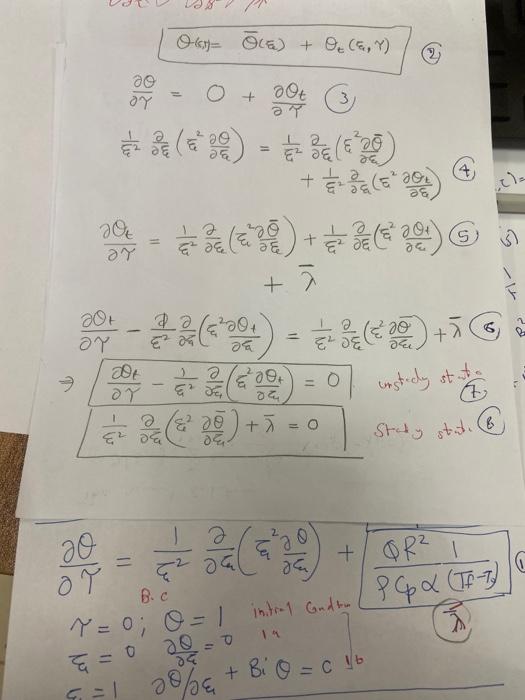 Θ(ξ,τ) = Θ̄(ξ) + Θt(ξ,τ) ②
∂Θ/∂τ = 0 + ∂Θt/∂τ ③
1/ξ² ∂/∂ξ (ξ² ∂Θ/∂ξ) = 1/ξ² ∂/∂ξ (ξ² ∂Θ̄/∂ξ)
+ 1/ξ² ∂/∂ξ (ξ² ∂Θt/∂ξ) ④
∂Θt/∂τ = 1/ξ² ∂/∂ξ (ξ² ∂Θ̄/∂ξ) + 1/ξ² ∂/∂ξ (ξ² ∂Θt/∂ξ) ⑤
+ γ̄
∂Θt/∂τ − 1/ξ² ∂/∂ξ (ξ² ∂Θt/∂ξ) = 1/ξ² ∂/∂ξ (ξ² ∂Θ̄/∂ξ) + γ̄ ⑥
⇒ ∂Θt/∂τ − 1/ξ² ∂/∂ξ (ξ² ∂Θt/∂ξ) = 0 unstedy state ⑦
1/ξ² ∂/∂ξ (ξ² ∂Θ̄/∂ξ) + γ̄ = 0 Stedy state ⑧
∂Θ/∂τ = 1/ξ² ∂/∂ξ (ξ² ∂Θ/∂ξ) + ΦR² 1 / ρCpα (Ti-Tf) ①
γ̄
B.C
τ = 0; Θ = 1 initial Condition
ξ = 0 ∂Θ/∂ξ = 0 1a
ξ = 1 ∂Θ/∂ξ + Bi Θ = 0 1b